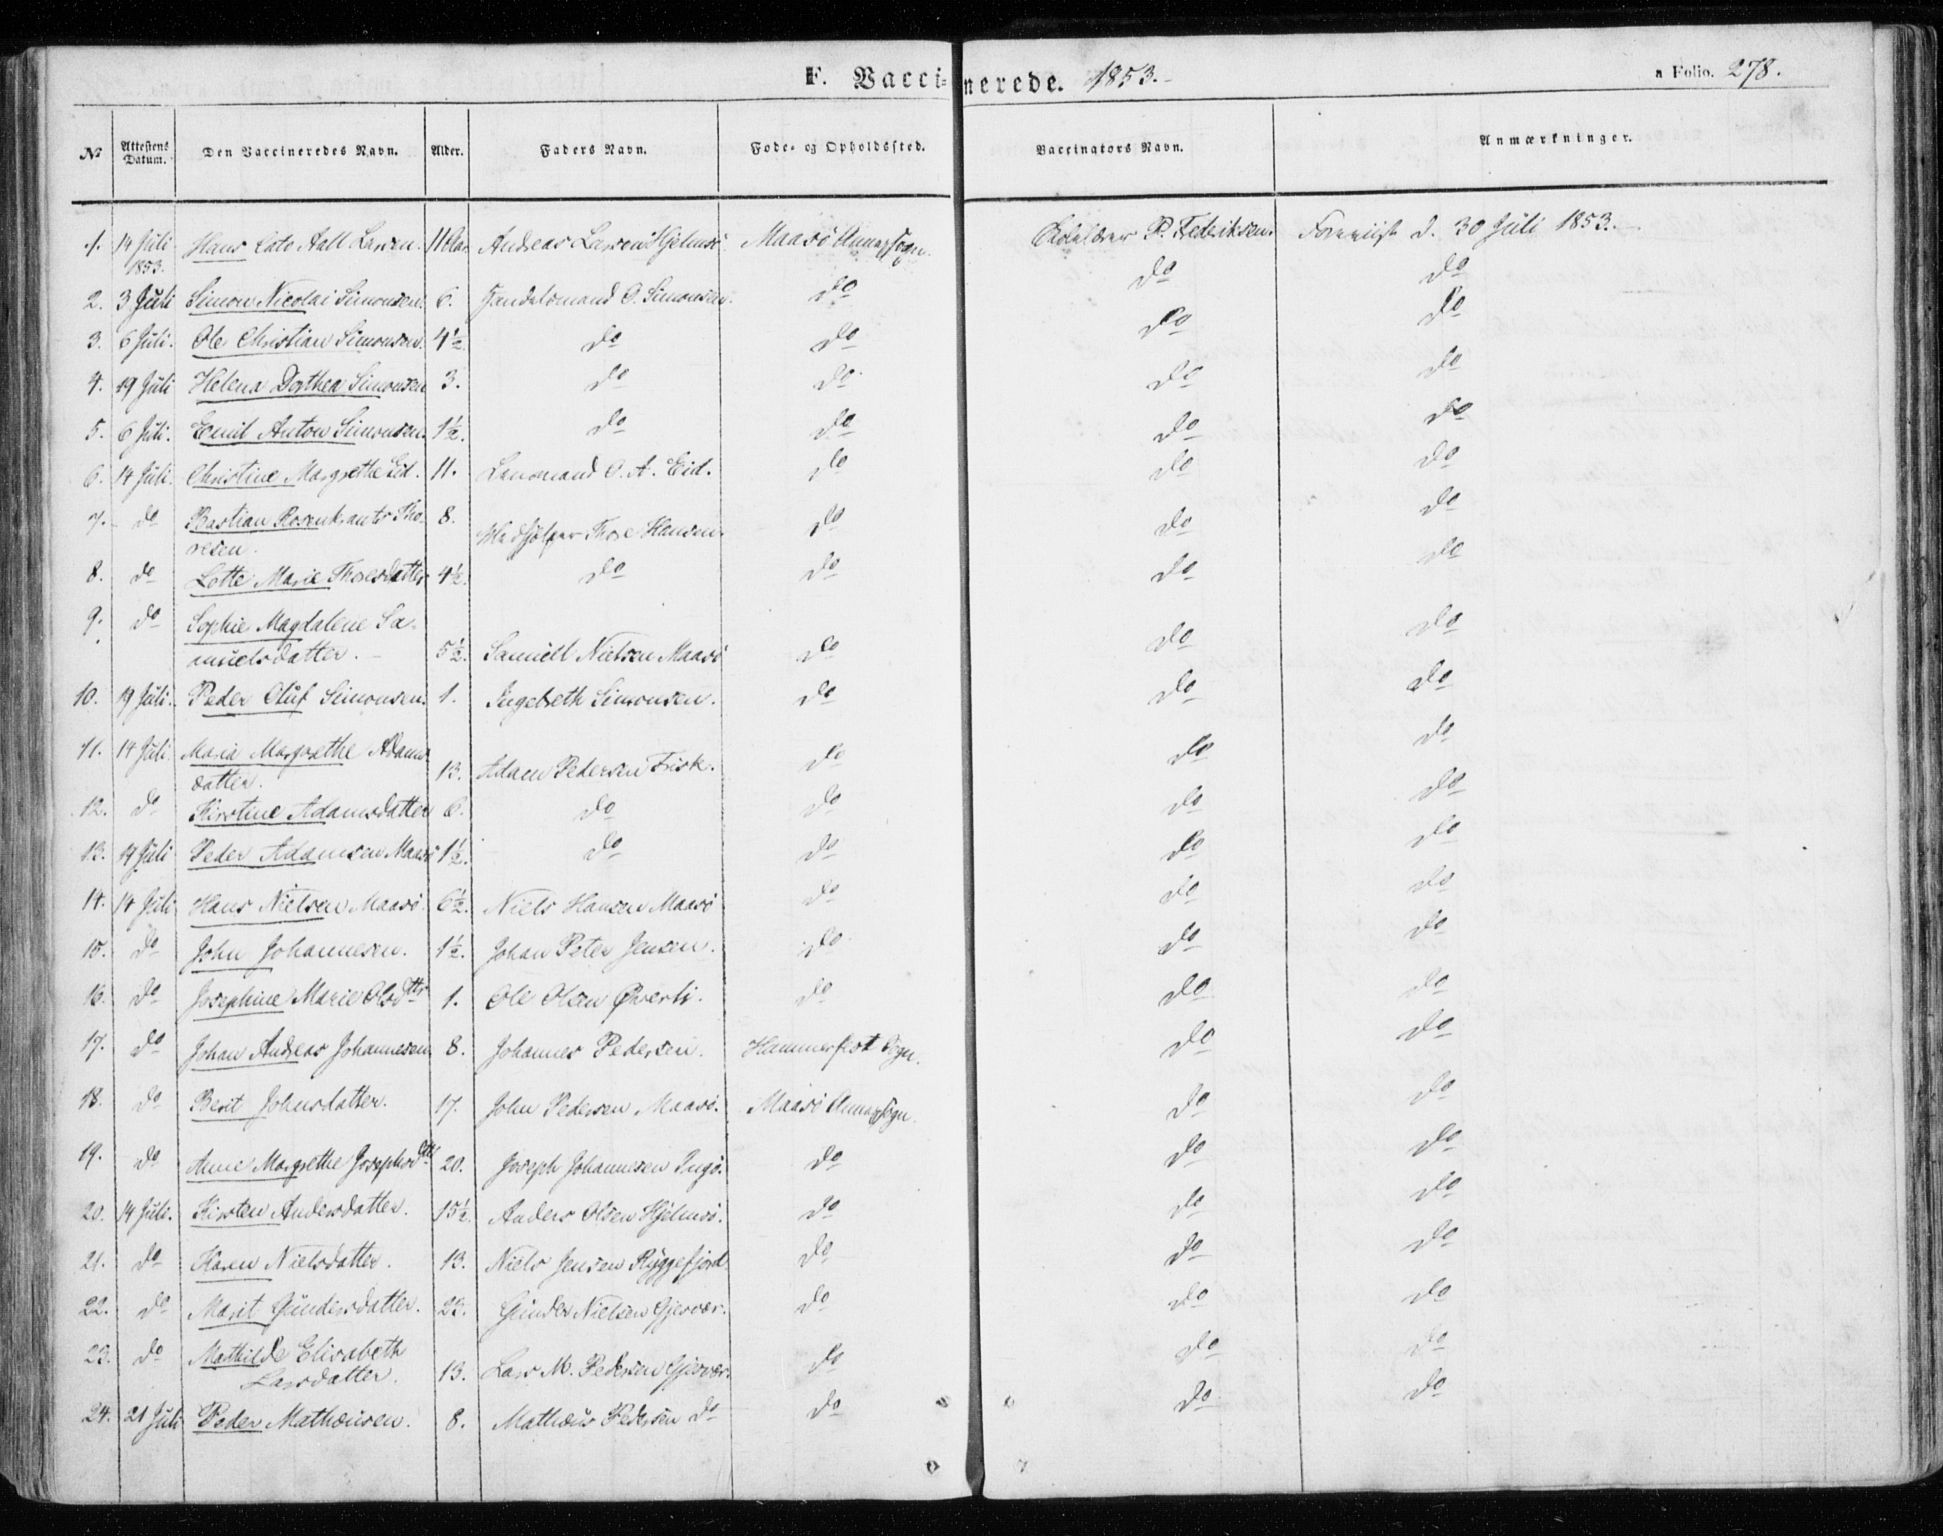 F. Vaccinerede. 1853. a Folio. 278.
No Attestens Datum. Den Vaccineredes Navn. Alder. Faders Navn. Føde- og Opholdssted. Vaccinators Navn. Anmærkninger.
1. 14 Juli 1853. Hans Cato Aall Larsen. 11 Aar Andreas Larsen Hjelmsö. Maasö Annexsogn. P. Fedriksen. Foreviist d. 30 Juli 1853.
2. 3 Juli Simon Nicolai Simonsen. 6. Handelsmand O. Simonsen. do do do
3. 6 Juli. Ole Christian Simonsen. 4½ do do do do
4. 19 Juli Helena Dorthea Simonsen 3. do do do do
5. 6 Juli. Emil Anton Simonsen. 1½. do do do do
6. 14 Juli. Christine Margrethe Eid. 11. Lensmand O. A. Eid. do do do
7. do Bastian Rosenkrants Tho-
resen. 8. Thore Hansen. do do do
8. do Lotte Marie Thoresdatter 4½. do do do do
9. do Sophie Magdalene Sa-
muelsdatter. 5½. Samuel Nielsen Maasö do do do
10. 19 Juli. Peder Oluf Simonsen. 1. Ingebreth Simonsen. do do do
11. 14 Juli. Maria Margrethe Adams
datter. 13. Adam Pedersen Fisk. do do do
12. do Kirstine Adamsdatter 6. do do do do
13. 14 Juli Peder Adamsen Maasö 1½. do do do do
14. 14 Juli Hans Nielsen Maasö. 6½. Niels Hansen Maasö do do do
15. do John Johannesen. 1½. Johan Peter Jensen. do do do
16. do Josephine Marie Olsdtr 1. Ole Olsen Överli. do do do
17. do Johan Andreas Johannesen 8. Johannes Pedersen. Hammerfest Sogn. do do
18. do Berit Johnsdatter. 17. John Pedersen Maasö. Maasö Annexsogn. do do
19. do Anne Margrethe Josephsdtr 20. Joseph Johannesen Ingö. do do do
20. 14 Juli. Kirsten Andersdatter. 15½ Anders Olsen Hjelmsö. do do do
21. do Karen Nielsdatter. 13. Niels Jensen Ryggefjord do do do
22. do Marit Gundersdatter. 23. Gunder Nielsen Gjesvær. do do do
23. do Mathilde Elisabeth
Larsdatter. 13. Lars M. Pedersen Gjesvær. do do do
24. 21 Juli Peder Mathæusen. 8. Mathæus Pedersen do do do do